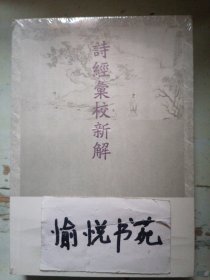 詩經彙校新解
愉悦书苑